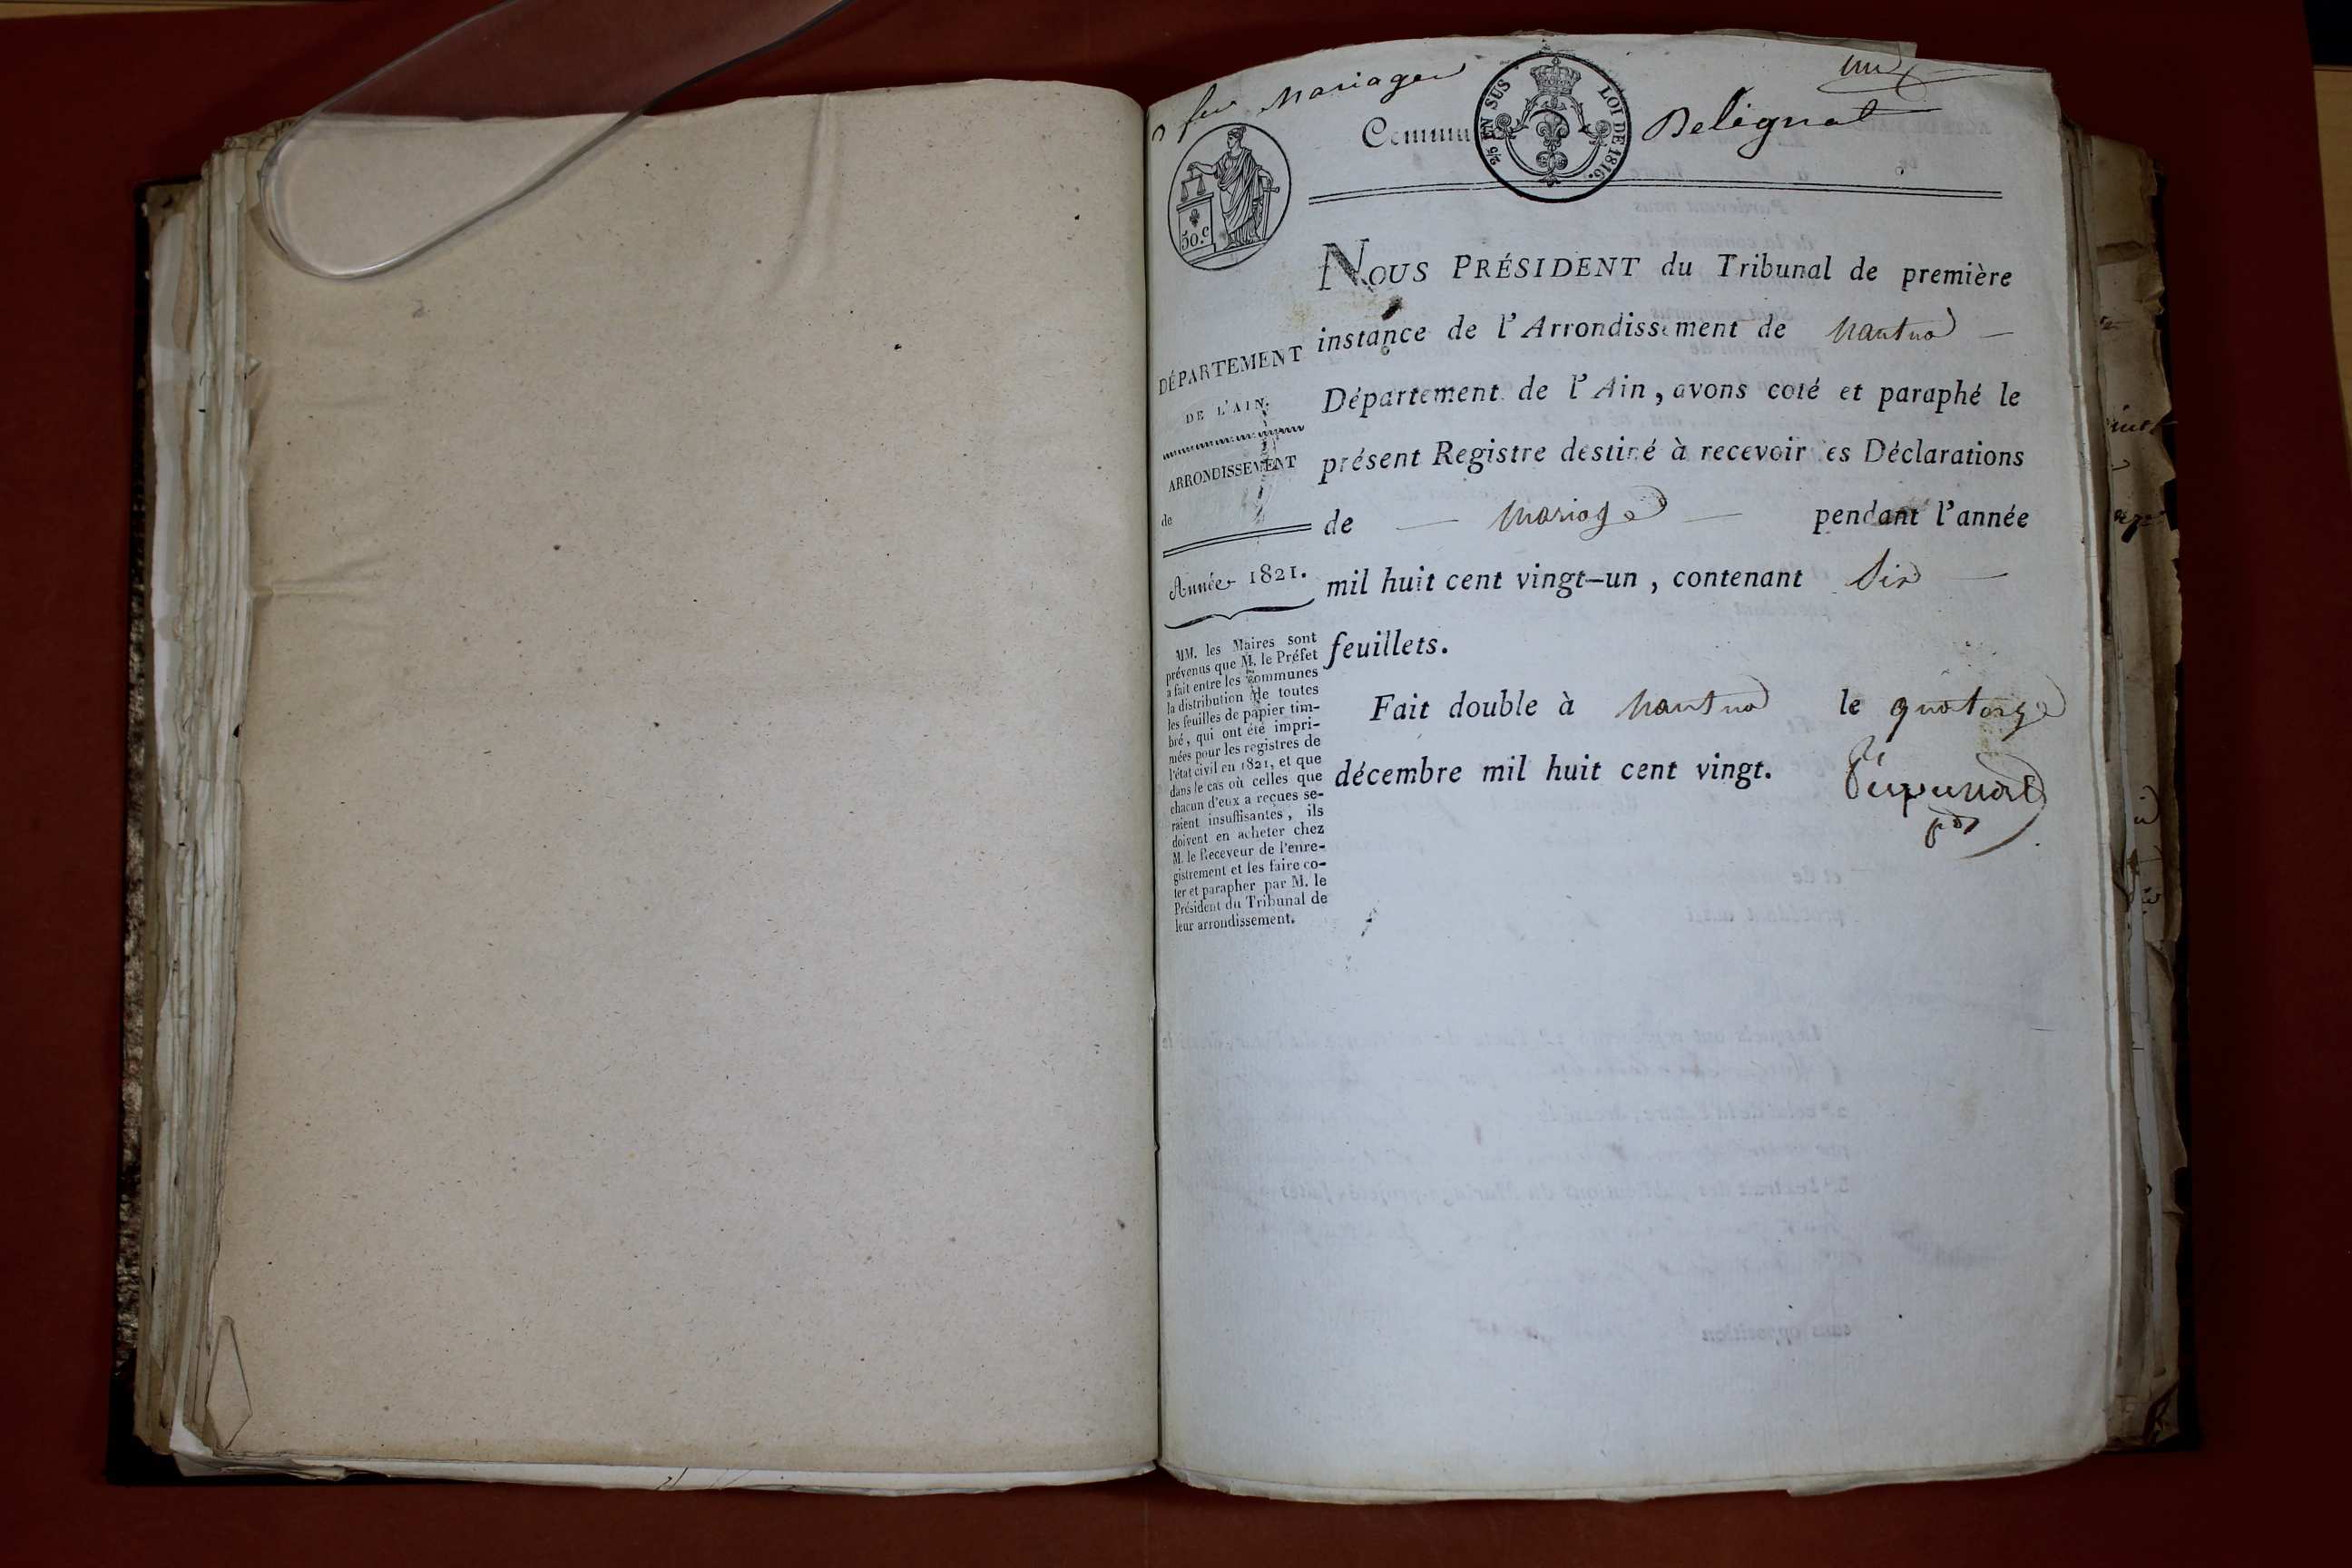 feuil Mariages
un
Commu
2/5 EN SUS
LOI DE 1816.
Belignat
50.c
NOUS PRÉSIDENT du Tribunal de première
instance de l'Arrondissement de Nantua
Département de l'Ain, avons coté et paraphé le
présent Registre destiné à recevoir es Déclarations
de — Mariage — pendant l'année
mil huit cent vingt-un, contenant Six
feuillets.
Fait double à Nantua le quatorze
décembre mil huit cent vingt.
pdt
DÉPARTEMENT
DE L'AIN.
ARRONDISSEMENT
de
Année 1821.
MM. les Maires sont
prévenus que M. le Préfet
a fait entre les communes
la distribution de toutes
les feuilles de papier tim-
bré, qui ont été impri-
mées pour les registres de
l'état civil en 1821, et que
dans le cas où celles que
chacun d'eux a reçues se-
raient insuffisantes, ils
doivent en acheter chez
M. le Receveur de l'enre-
gistrement et les faire co-
ter et parapher par M. le
Président du Tribunal de
leur arrondissement.